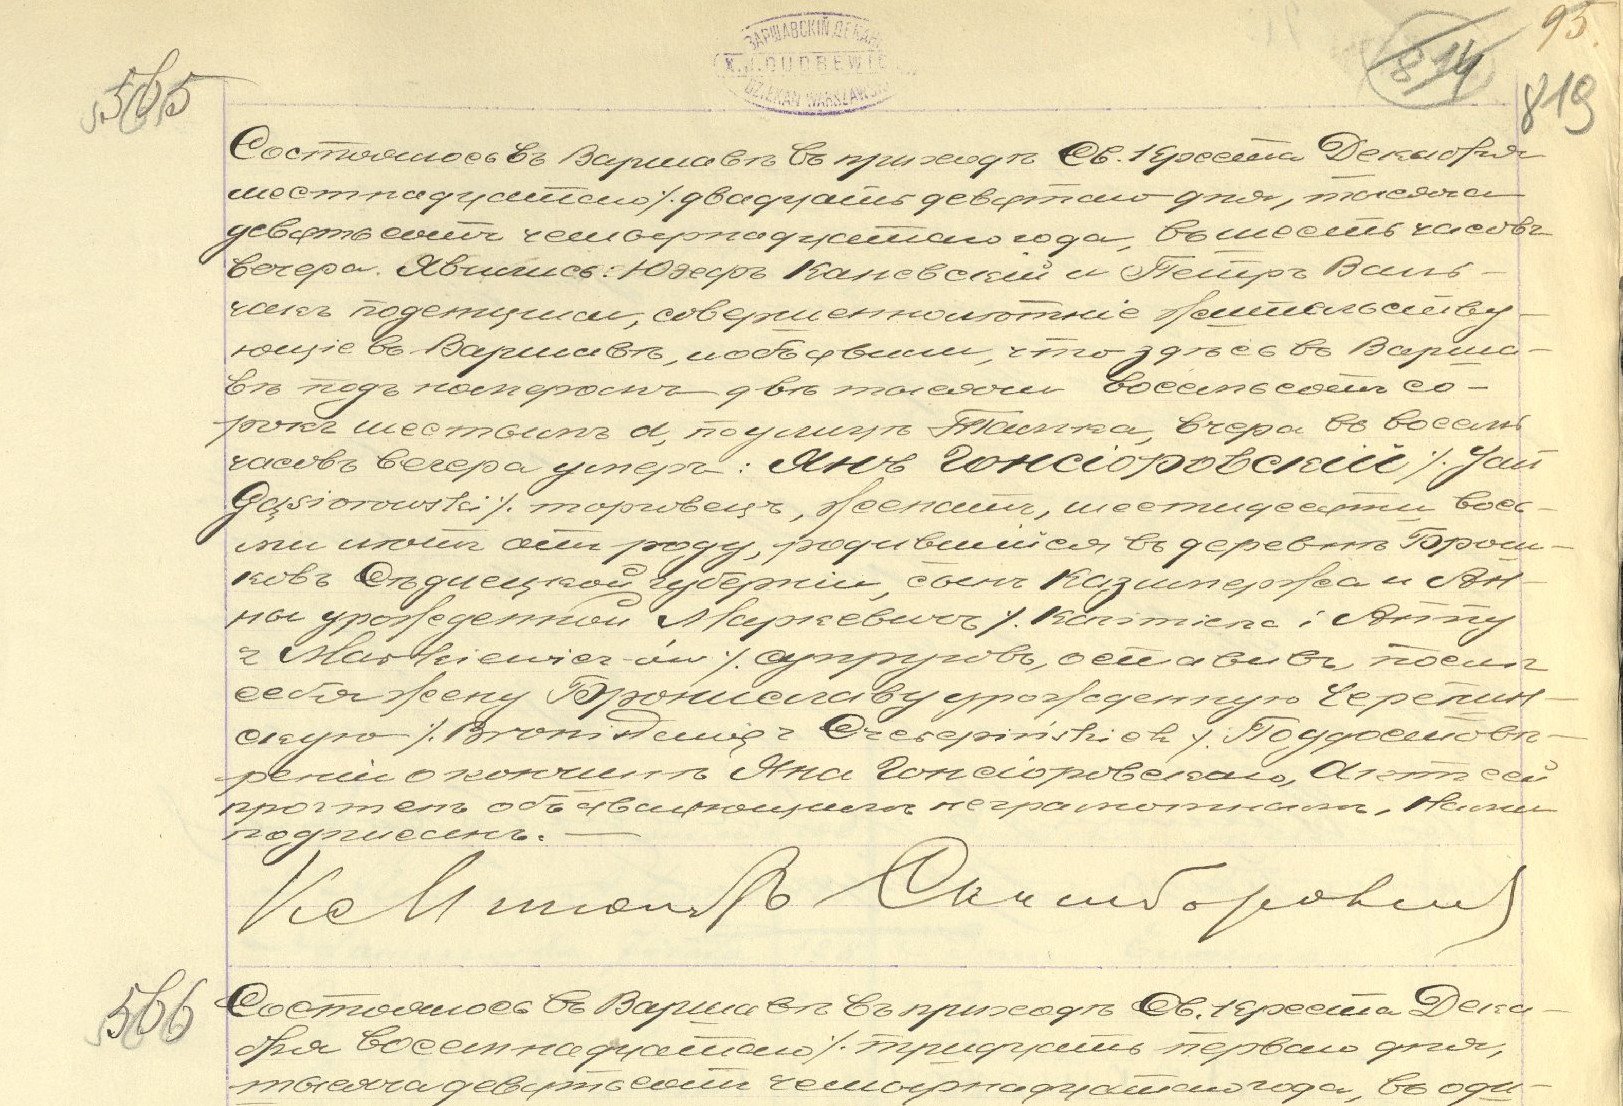 95.
814
819
ВАРШАВСКІЙ ДЕКАНЪ
DZIEKAN WARSZAWSKI
565
Состоялось въ Варшавѣ въ приходѣ Св. Креста Декабря
шестнадцатаго /. двадцать девятаго дня, тысяча
девятьсотъ четырнадцатаго года, въ шесть часовъ
вечера. Явились: Юзефъ Каневскій и Петръ Валь-
чакъ поденщики, совершеннолѣтніе жительству-
ющіе въ Варшавѣ, и объявили, что здѣсь въ Варша-
вѣ подъ номеромъ двѣ тысячи восемьсотъ со-
рокъ шестымъ d, по улицѣ Тамка, вчера въ восемь
часовъ вечера умеръ: Янъ Гонсіоровскій /. Jan
Gąsiorowski /. торговецъ, женатъ, шестидесяти вось-
ми лѣтъ отъ роду, родившійся въ деревнѣ Брош-
ковъ Сѣдлецкой губерніи, сынъ Казимержа и Ан-
ны урожденной Маркевичъ /. Kazimierza i Anny
z Markiewicz-ów /. супруговъ, оставивъ послѣ
себя жену Брониславу урожденную Черепин-
скую /. Bronisławę z Czerepińskich /. По удостовѣ-
реніи о кончинѣ Яна Гонсіоровскаго, Актъ сей
прочтенъ объявляющимъ неграмотнымъ, Нами
подписанъ. —
566
Состоялось въ Варшавѣ въ приходѣ Св. Креста Дека-
бря восемнадцатаго /. тридцать перваго дня,
тысяча девятьсотъ четырнадцатаго года, въ оди-